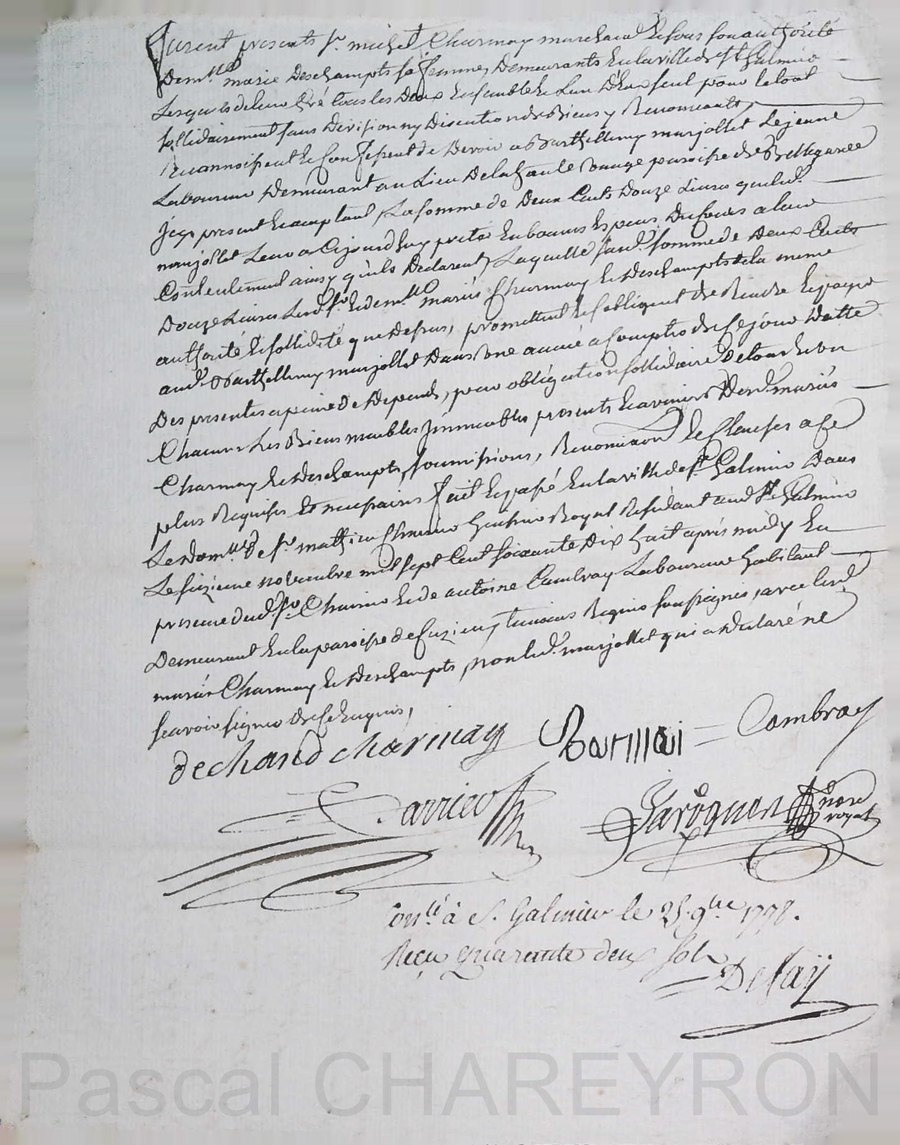 furent presents sr michel Charmay marchand et sous son authorité
Demlle marie Deschampts sa femme, Demeurants en la ville de st Galmier
Lesquels de leur gré tous les Deux ensemble et l'un D'eux seul pour le tout
sollidairement sans Division ny Discution de Biens y Renonceants,
Reconnoissent et Confessent de Devoir a Barthellemy marjollet Le jeune
Laboureur Demeurant au Lieu De la paroisse de Bellegarde
jcy present acceptant, La somme de Deux Cents Douze Livres que led.
marjollet Leur a Cejourd'huy pretée en bonnes Especes Du Cours a leur
Contentement ainsy qu'ils Declarent, Laquelle susd. somme de Deux Cents
Douze Livres Lesd. sr et demlle mariés Charmay et Deschampts de la meme
authorité et solidité que Dessus, promettent et s'obligent de Rendre et payer
aud. Barthellemy marjollet Dans une année a Compter de Ce jour Datte
Des presentes a peine de Depends, pour obligation sollidaire De tout et un
Chacuns Les Biens meubles jmmeubles presents et avenirs Desd. mariés
Charmay et Deschampts, soumissions, Renonciations et Clauses a ce
plus Requises et necessaires fait et passé en la ville de st Galmier Dans
Le domlle de sr mathieu Royal Residant aud. st Galmier
Le seizieme novembre mil sept Cent soixante Dix huit après midy En
presence dud. sr et de antoine Cambray Laboureur habitant
Demeurant en la paroisse de temoins Requis soussignés, avec lesd.
mariés Charmay et Deschampts, non led. marjollet qui a declaré ne
scavoir signer de Ce Enquis,
dechand charmay Cambray
nore
royal
Conlé à St. Galmier le 25. 9bre 1778.
Reçu quarante deux sols
Defaÿ
Pascal CHAREYRON